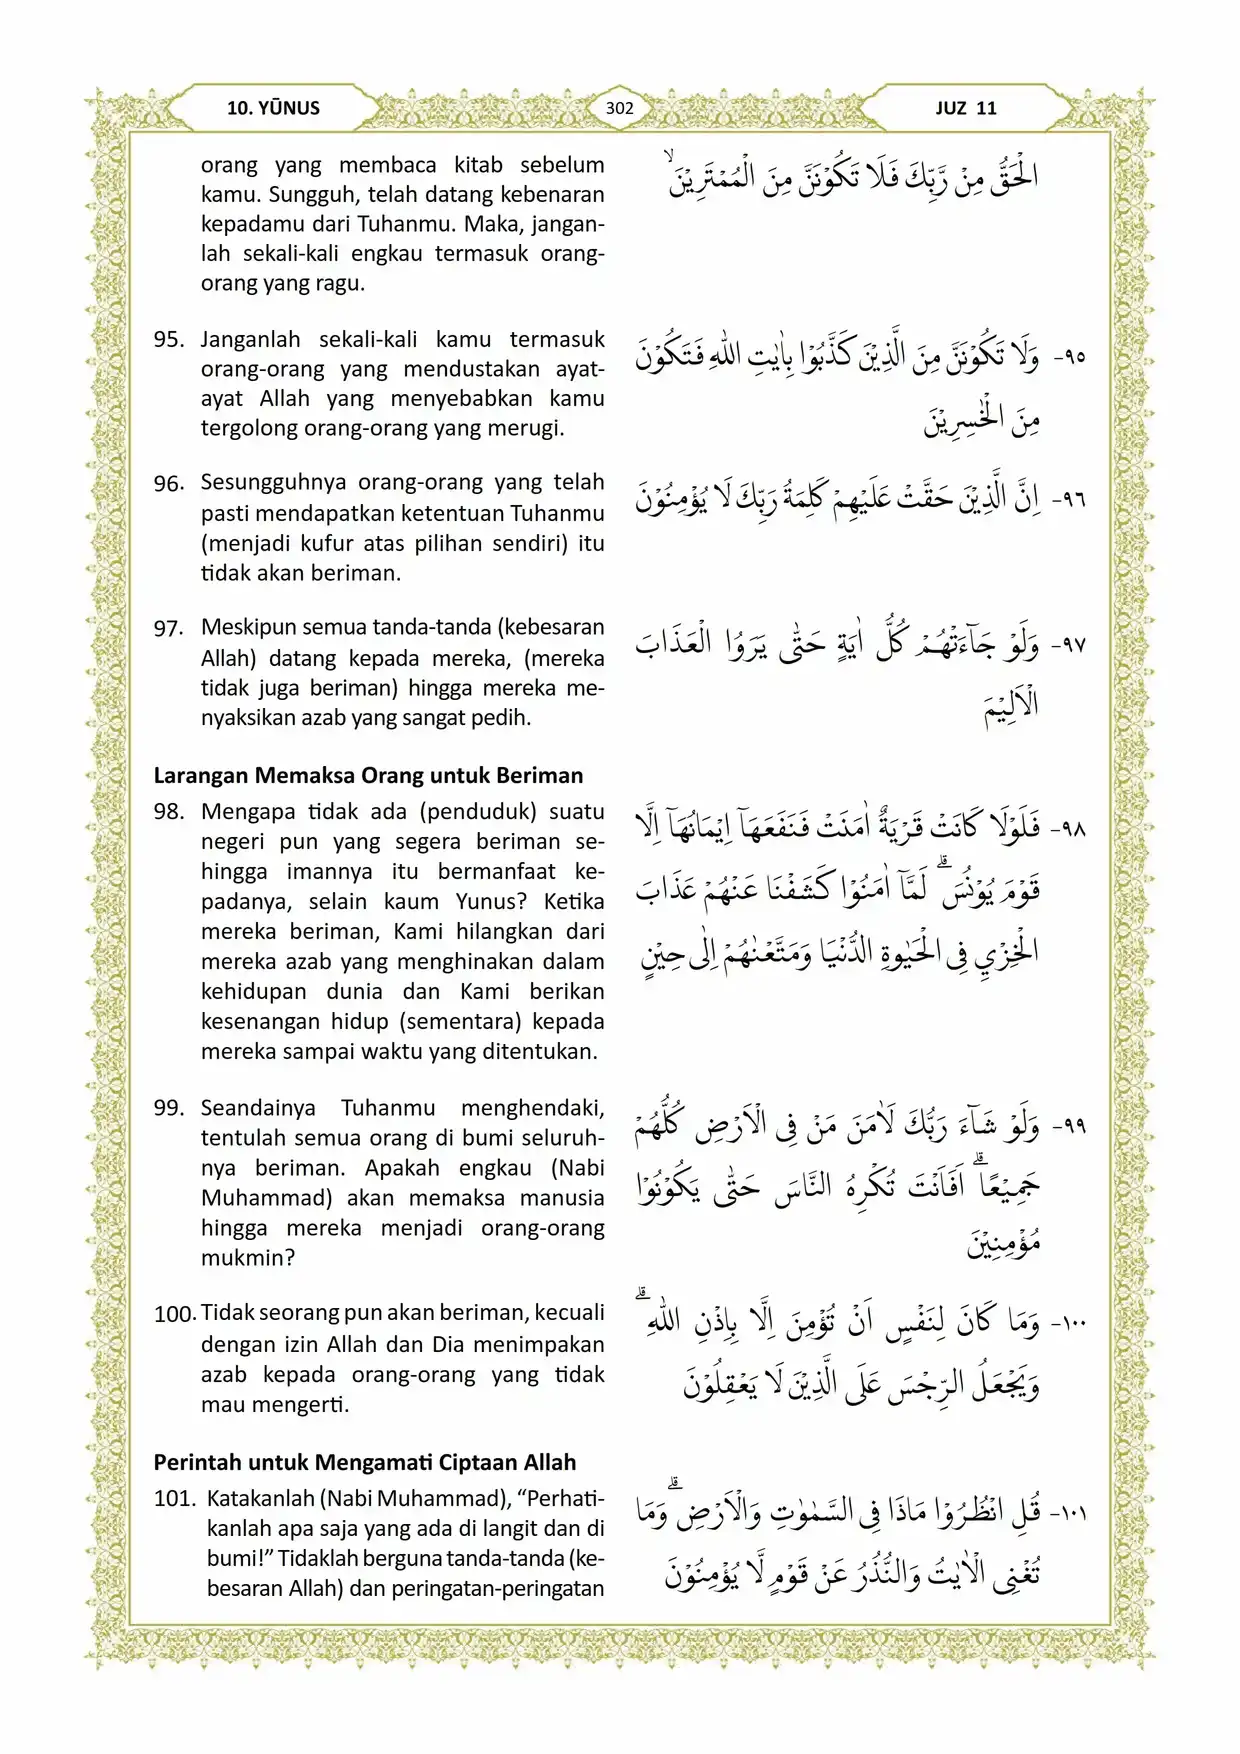 10. YŪNUS
302
JUZ 11
orang yang membaca kitab sebelum
kamu. Sungguh, telah datang kebenaran
kepadamu dari Tuhanmu. Maka, jangan-
lah sekali-kali engkau termasuk orang-
orang yang ragu.
الْحَقُّ مِنْ رَّبِّكَ فَلَا تَكُوْنَنَّ مِنَ الْمُمْتَرِيْنَۙ
95. Janganlah sekali-kali kamu termasuk
orang-orang yang mendustakan ayat-
ayat Allah yang menyebabkan kamu
tergolong orang-orang yang merugi.
٩٥- وَلَا تَكُوْنَنَّ مِنَ الَّذِيْنَ كَذَّبُوْا بِاٰيٰتِ اللّٰهِ فَتَكُوْنَ
مِنَ الْخٰسِرِيْنَ
96. Sesungguhnya orang-orang yang telah
pasti mendapatkan ketentuan Tuhanmu
(menjadi kufur atas pilihan sendiri) itu
tidak akan beriman.
٩٦- اِنَّ الَّذِيْنَ حَقَّتْ عَلَيْهِمْ كَلِمَةُ رَبِّكَ لَا يُؤْمِنُوْنَ
97. Meskipun semua tanda-tanda (kebesaran
Allah) datang kepada mereka, (mereka
tidak juga beriman) hingga mereka me-
nyaksikan azab yang sangat pedih.
٩٧- وَلَوْ جَاۤءَتْهُمْ كُلُّ اٰيَةٍ حَتّٰى يَرَوُا الْعَذَابَ
الْاَلِيْمَ
Larangan Memaksa Orang untuk Beriman
98. Mengapa tidak ada (penduduk) suatu
negeri pun yang segera beriman se-
hingga imannya itu bermanfaat ke-
padanya, selain kaum Yunus? Ketika
mereka beriman, Kami hilangkan dari
mereka azab yang menghinakan dalam
kehidupan dunia dan Kami berikan
kesenangan hidup (sementara) kepada
mereka sampai waktu yang ditentukan.
٩٨- فَلَوْلَا كَانَتْ قَرْيَةٌ اٰمَنَتْ فَنَفَعَهَآ اِيْمَانُهَآ اِلَّا
قَوْمَ يُوْنُسَۗ لَمَّآ اٰمَنُوْا كَشَفْنَا عَنْهُمْ عَذَابَ
الْخِزْيِ فِى الْحَيٰوةِ الدُّنْيَا وَمَتَّعْنٰهُمْ اِلٰى حِيْنٍ
99. Seandainya Tuhanmu menghendaki,
tentulah semua orang di bumi seluruh-
nya beriman. Apakah engkau (Nabi
Muhammad) akan memaksa manusia
hingga mereka menjadi orang-orang
mukmin?
٩٩- وَلَوْ شَاۤءَ رَبُّكَ لَاٰمَنَ مَنْ فِى الْاَرْضِ كُلُّهُمْ
جَمِيْعًاۗ اَفَاَنْتَ تُكْرِهُ النَّاسَ حَتّٰى يَكُوْنُوْا
مُؤْمِنِيْنَ
100. Tidak seorang pun akan beriman, kecuali
dengan izin Allah dan Dia menimpakan
azab kepada orang-orang yang tidak
mau mengerti.
١٠٠- وَمَا كَانَ لِنَفْسٍ اَنْ تُؤْمِنَ اِلَّا بِاِذْنِ اللّٰهِۗ
وَيَجْعَلُ الرِّجْسَ عَلَى الَّذِيْنَ لَا يَعْقِلُوْنَ
Perintah untuk Mengamati Ciptaan Allah
101. Katakanlah (Nabi Muhammad), “Perhati-
kanlah apa saja yang ada di langit dan di
bumi!” Tidaklah berguna tanda-tanda (ke-
besaran Allah) dan peringatan-peringatan
١٠١- قُلِ انْظُرُوْا مَاذَا فِى السَّمٰوٰتِ وَالْاَرْضِۗ وَمَا
تُغْنِى الْاٰيٰتُ وَالنُّذُرُ عَنْ قَوْمٍ لَّا يُؤْمِنُوْنَ